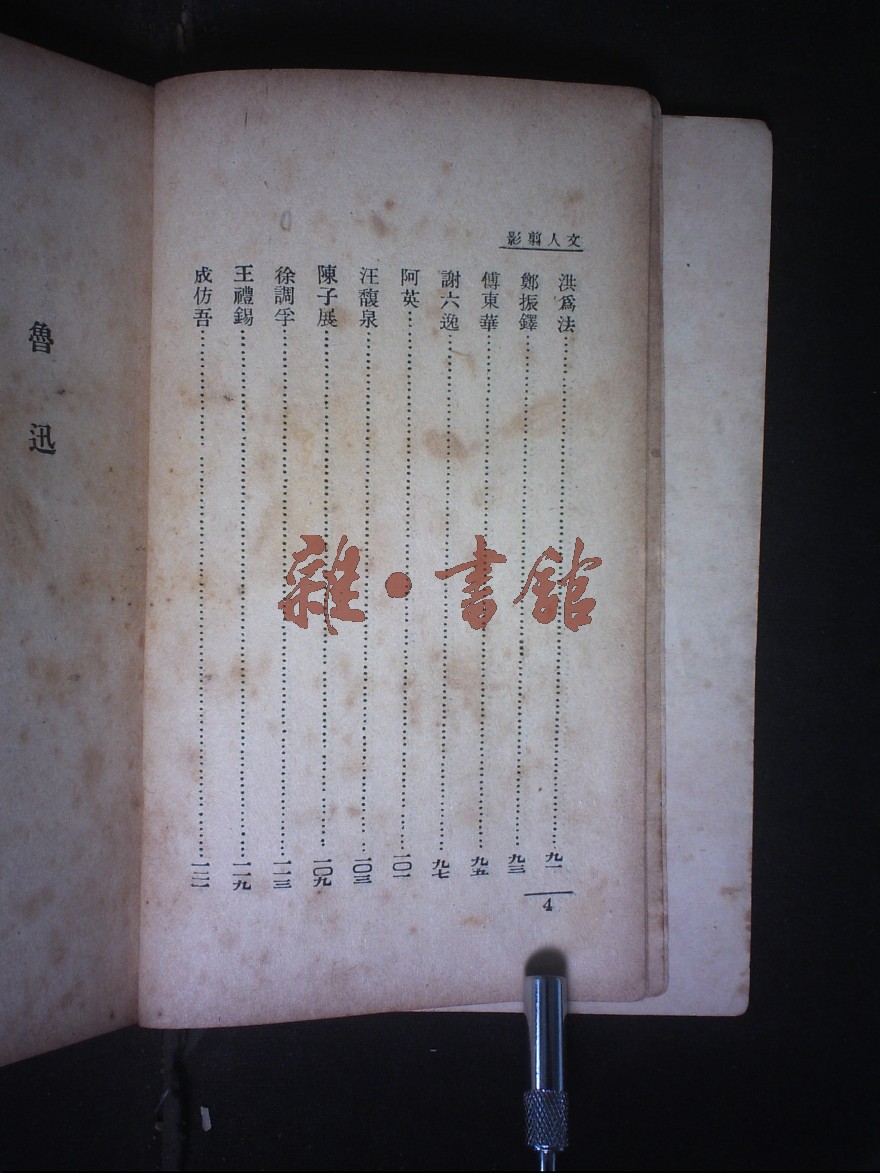 文人剪影
洪爲法……九一
鄭振鐸……九三
傅東華……九五
謝六逸……九七
阿英……一〇一
汪馥泉……一〇三
陳子展……一〇九
徐調孚……一一三
王禮錫……一一九
成仿吾……一二一
4
魯迅
雜·書館